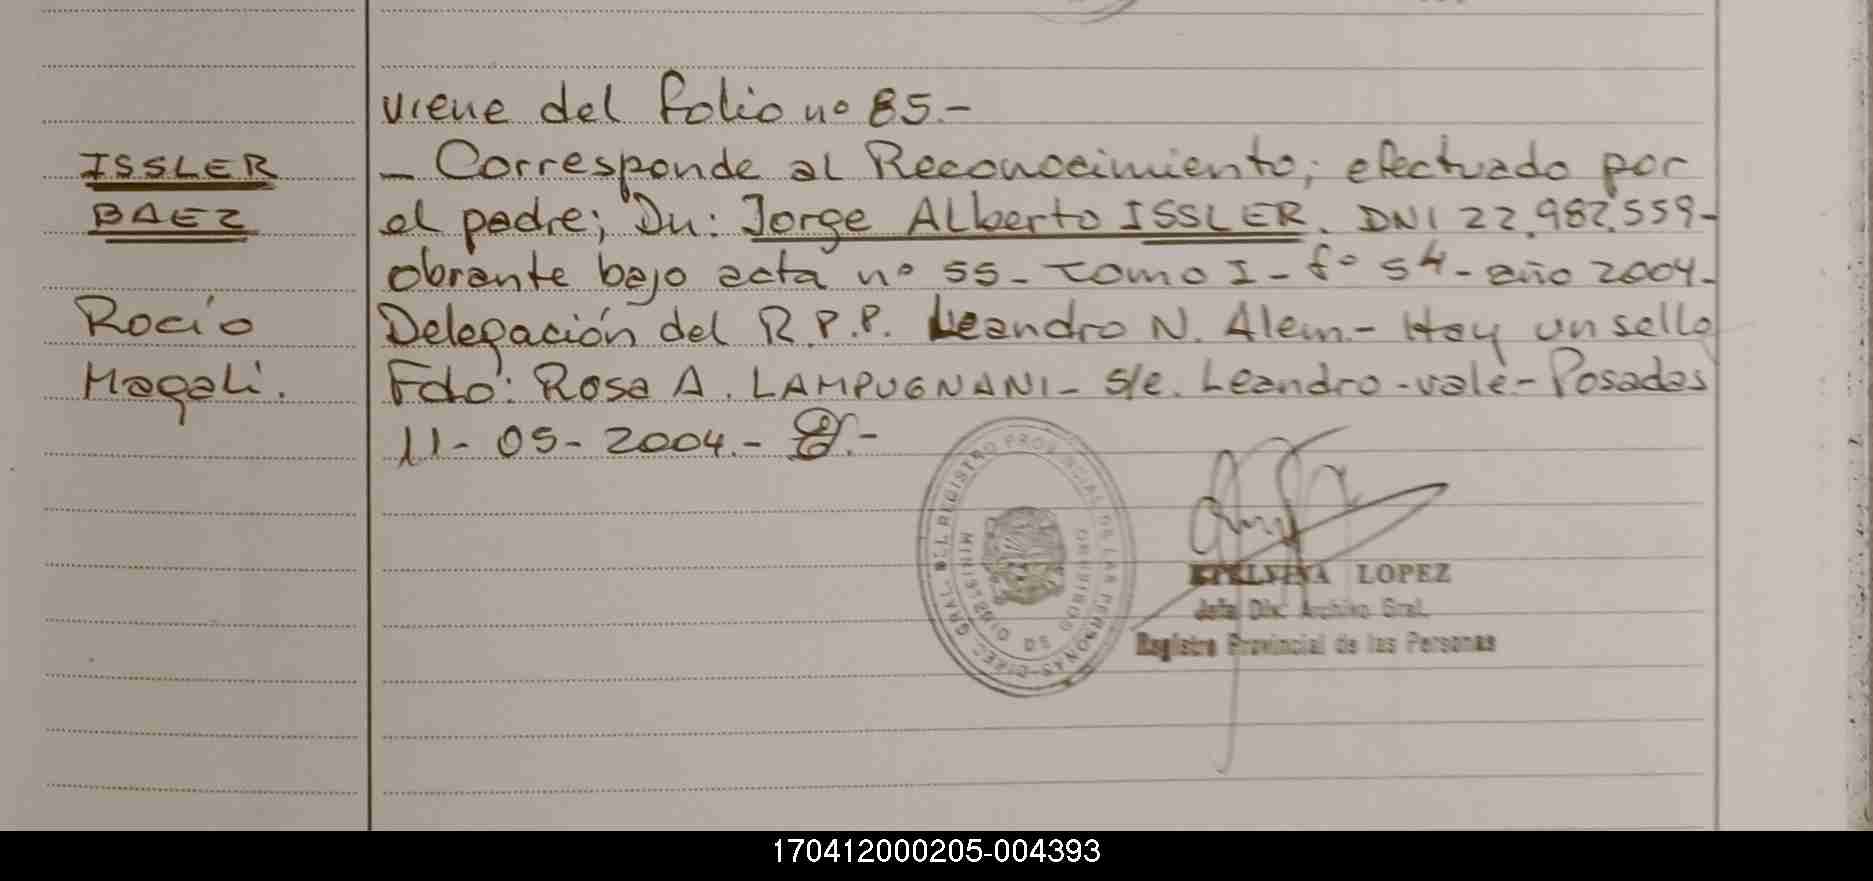 viene del folio nº 85.-
ISSLER
BAEZ
Rocío
Magali.
- Corresponde al Reconocimiento; efectuado por
el padre; Dn: Jorge Alberto ISSLER. DNI 22.982.559-
obrante bajo acta nº 55- Tomo I- fº 54- año 2004.-
Delegación del R.P.P. Leandro N. Alem.- Hay un sello
Fdo: Rosa A. LAMPUGNANI- s/e. Leandro -vale- Posadas
11-05-2004.-
DIREC. GRAL. DEL REGISTRO PROVINCIAL DE LAS PERSONAS
MINISTERIO DE GOBIERNO
LOPEZ
Jefa Div. Archivo Gral.
Registro Provincial de las Personas
170412000205-004393